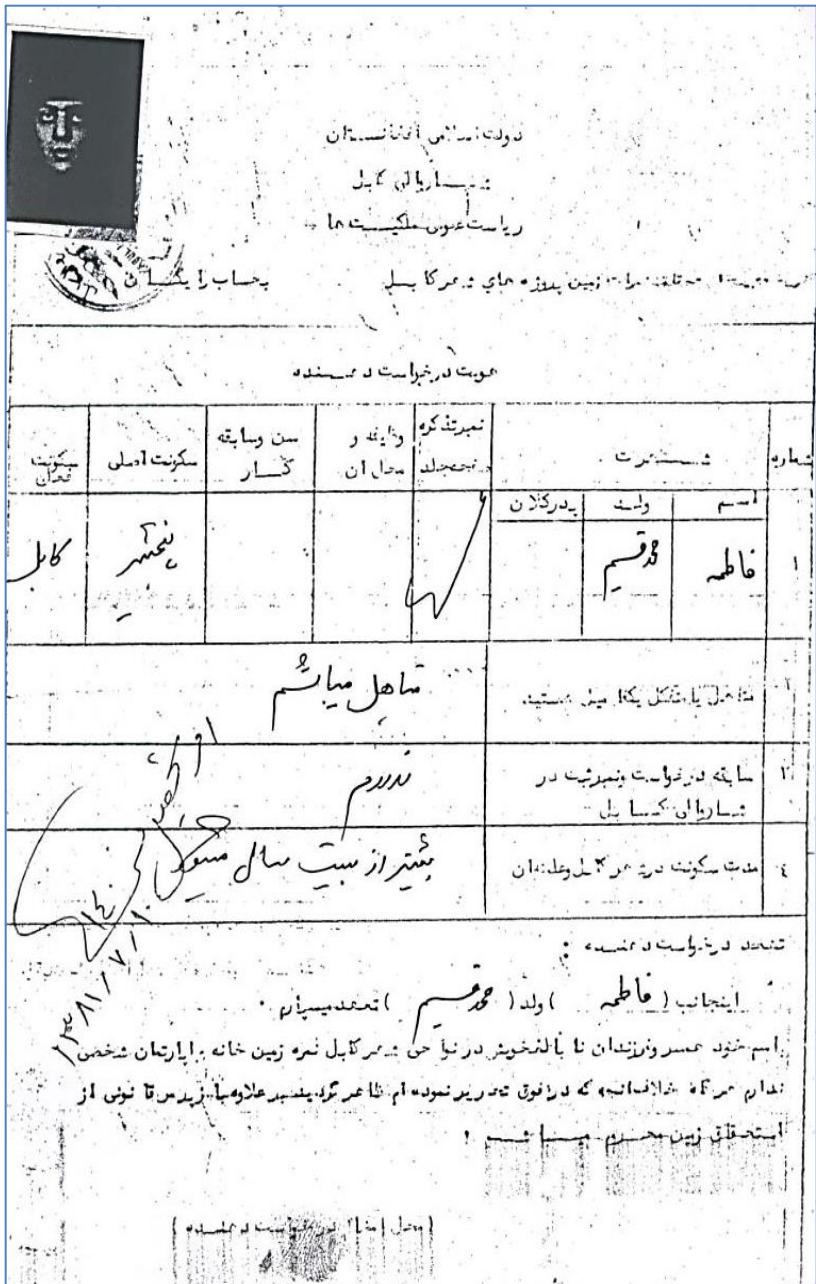 دولت اسلامی افغانستان
شاروالی کابل
ریاست عمومی ملکیت ها
زمین پروژه های شهر کابل بحساب رایگان
هویت درخواست دهنده
شماره شهرت نمبر تذکره وظیفه و محل آن سن و سابقه کار سکونت اصلی سکونت فعلی
اسم ولد پدرکلان
۱ فاطمه محمد قسیم پنجشیر کابل
متاهل یا متکفل یک فامیل هستید متاهل میباشم
۳ سابقه درخواست و نمبر ثبت در شاروالی کابل ندارم
۴ مدت سکونت در شهر کابل بیشتر از بیست سال میشود
۱۳۸۱/۷/۱۰
تعهد درخواست دهنده :
اینجانب ( فاطمه ) ولد ( محمد قسیم ) تعهد میسپارم .
اسم خود همسر و فرزندان نا بالغ خویش در نواحی شهر کابل نمره زمین خانه و اپارتمان شخصی
ندارم هر گاه خلاف آنچه که در فوق تحریر نموده ام ظاهر گردید علاوه باز پرس قانونی از
استحقاق زمین محروم میباشم .
( محل امضا درخواست دهنده )